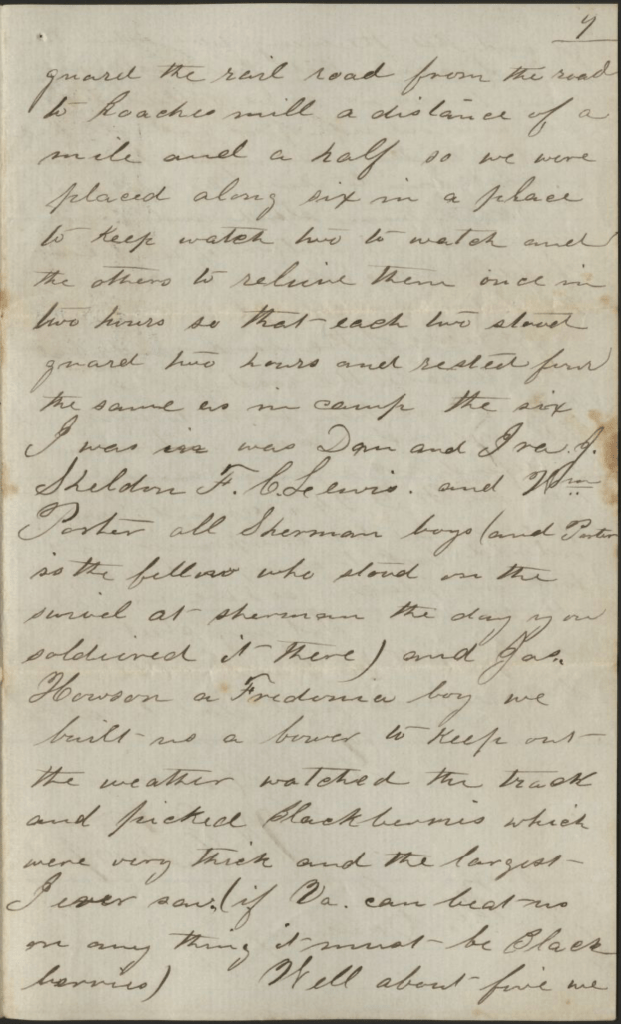 7
guard the rail road from the road
to Roaches mill a distance of a
mile and a half so we were
placed along six in a place
to keep watch two to watch and
the others to relieve them once in
two hours so that each two stood
guard two hours and rested four
the same as in camp the six
I was in was Dan and Ira J.
Sheldon F. C. Lewis. and Wm
Porter all Sherman boys (and Porter
is the fellow who stood on the
at sherman the day you
soldiered it there) and Jas.
Howson a Fredonia boy we
built us a bower to keep out
the weather watched the track
and picked Blackberries which
were very thick and the largest
I ever saw. (if Va. can beat us
on any thing it must be Black
berries) Well about five we